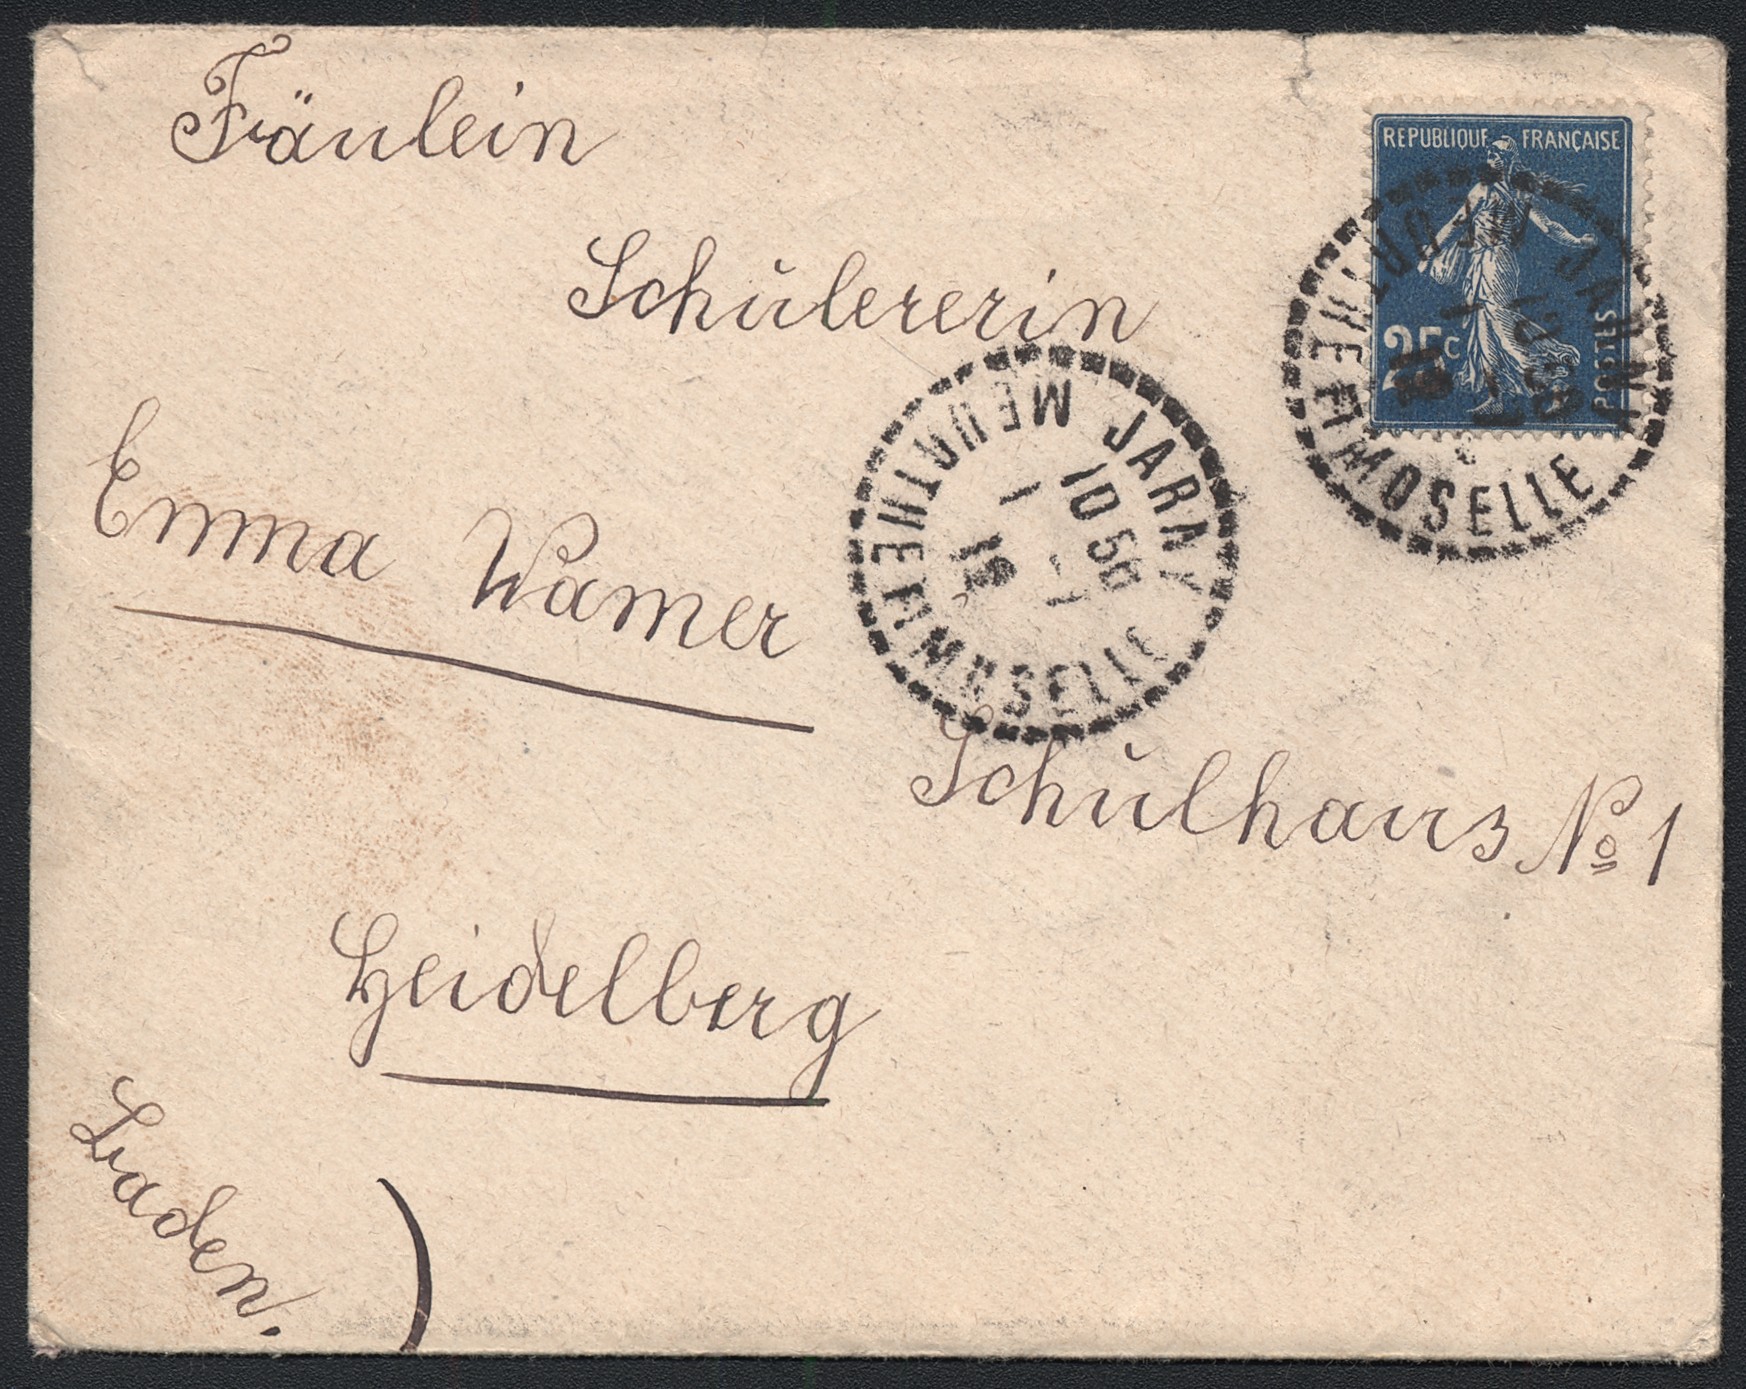 Fräulein
REPUBLIQUE FRANÇAISE
25c
POSTES
Schülererin
JARNY
MEURTHE ET MOSELLE
Emma Wamer
JARNY
10 50
1 - 1
MEURTHE ET MOSELLE
Schulhaus No 1
Heidelberg
Baden.)